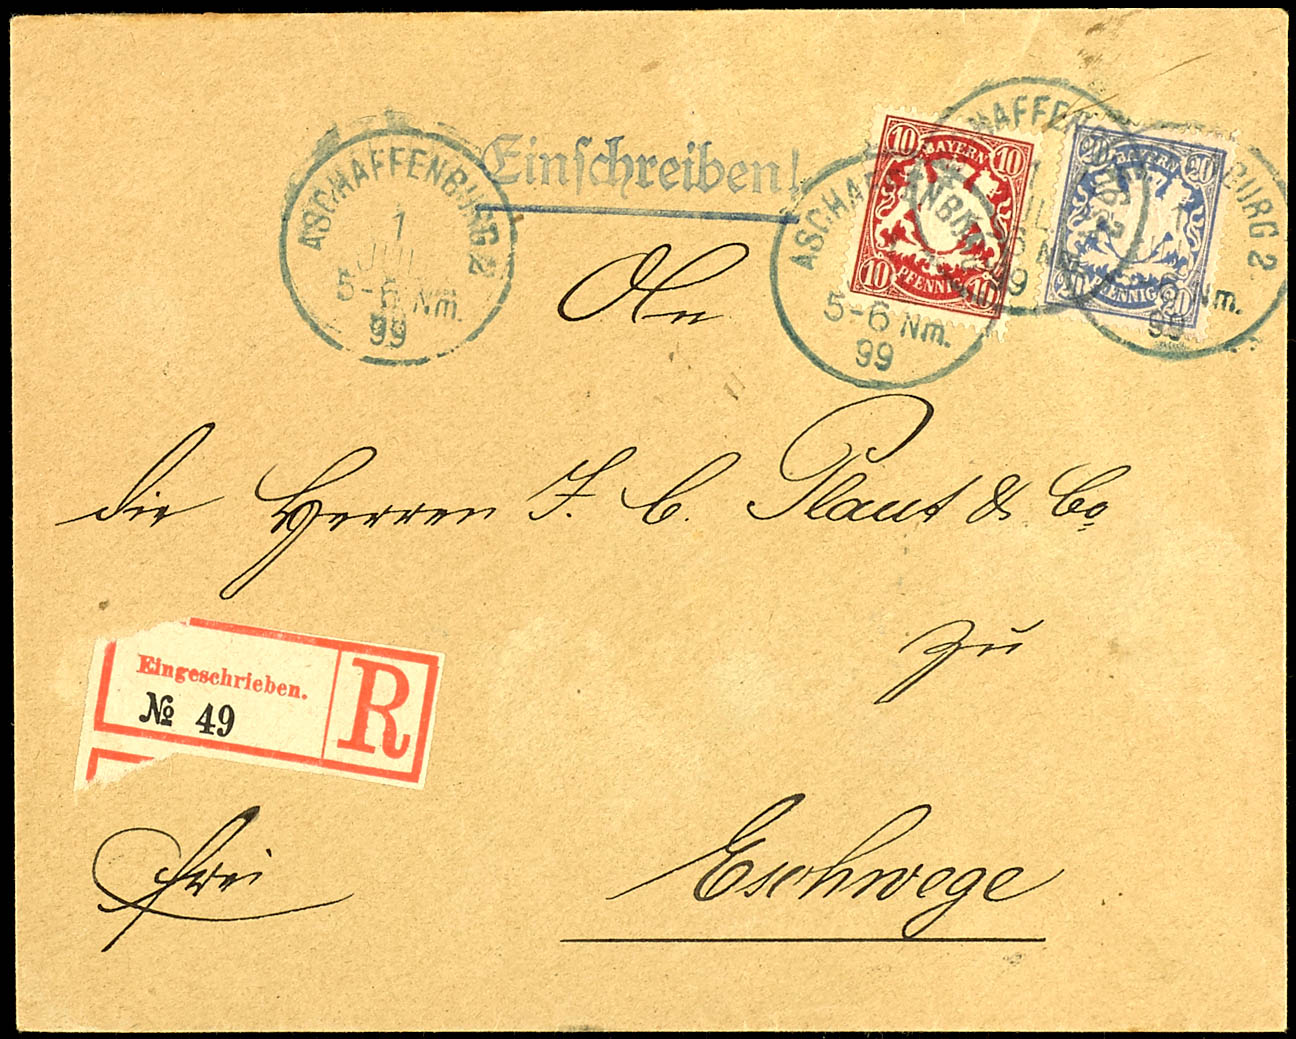 Einschreiben!
ASCHAFFENBURG 2
1
JUL
5-6 Nm.
99
10 BAYERN 10
10 PFENNIG 10
ASCHAFFENBURG 2
5-6 Nm.
99
20 BAYERN 20
20 PFENNIG 20
BURG 2
1
Nm.
99
An
die Herren J. C. Plaut & Co
zu
Eingeschrieben.
№ 49
R
frei
Eschwege